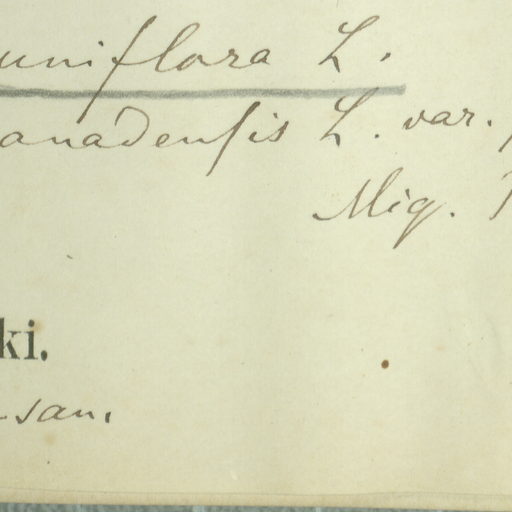 uniflora L.
anadensis L. var.
Miq.
ki.
-san.